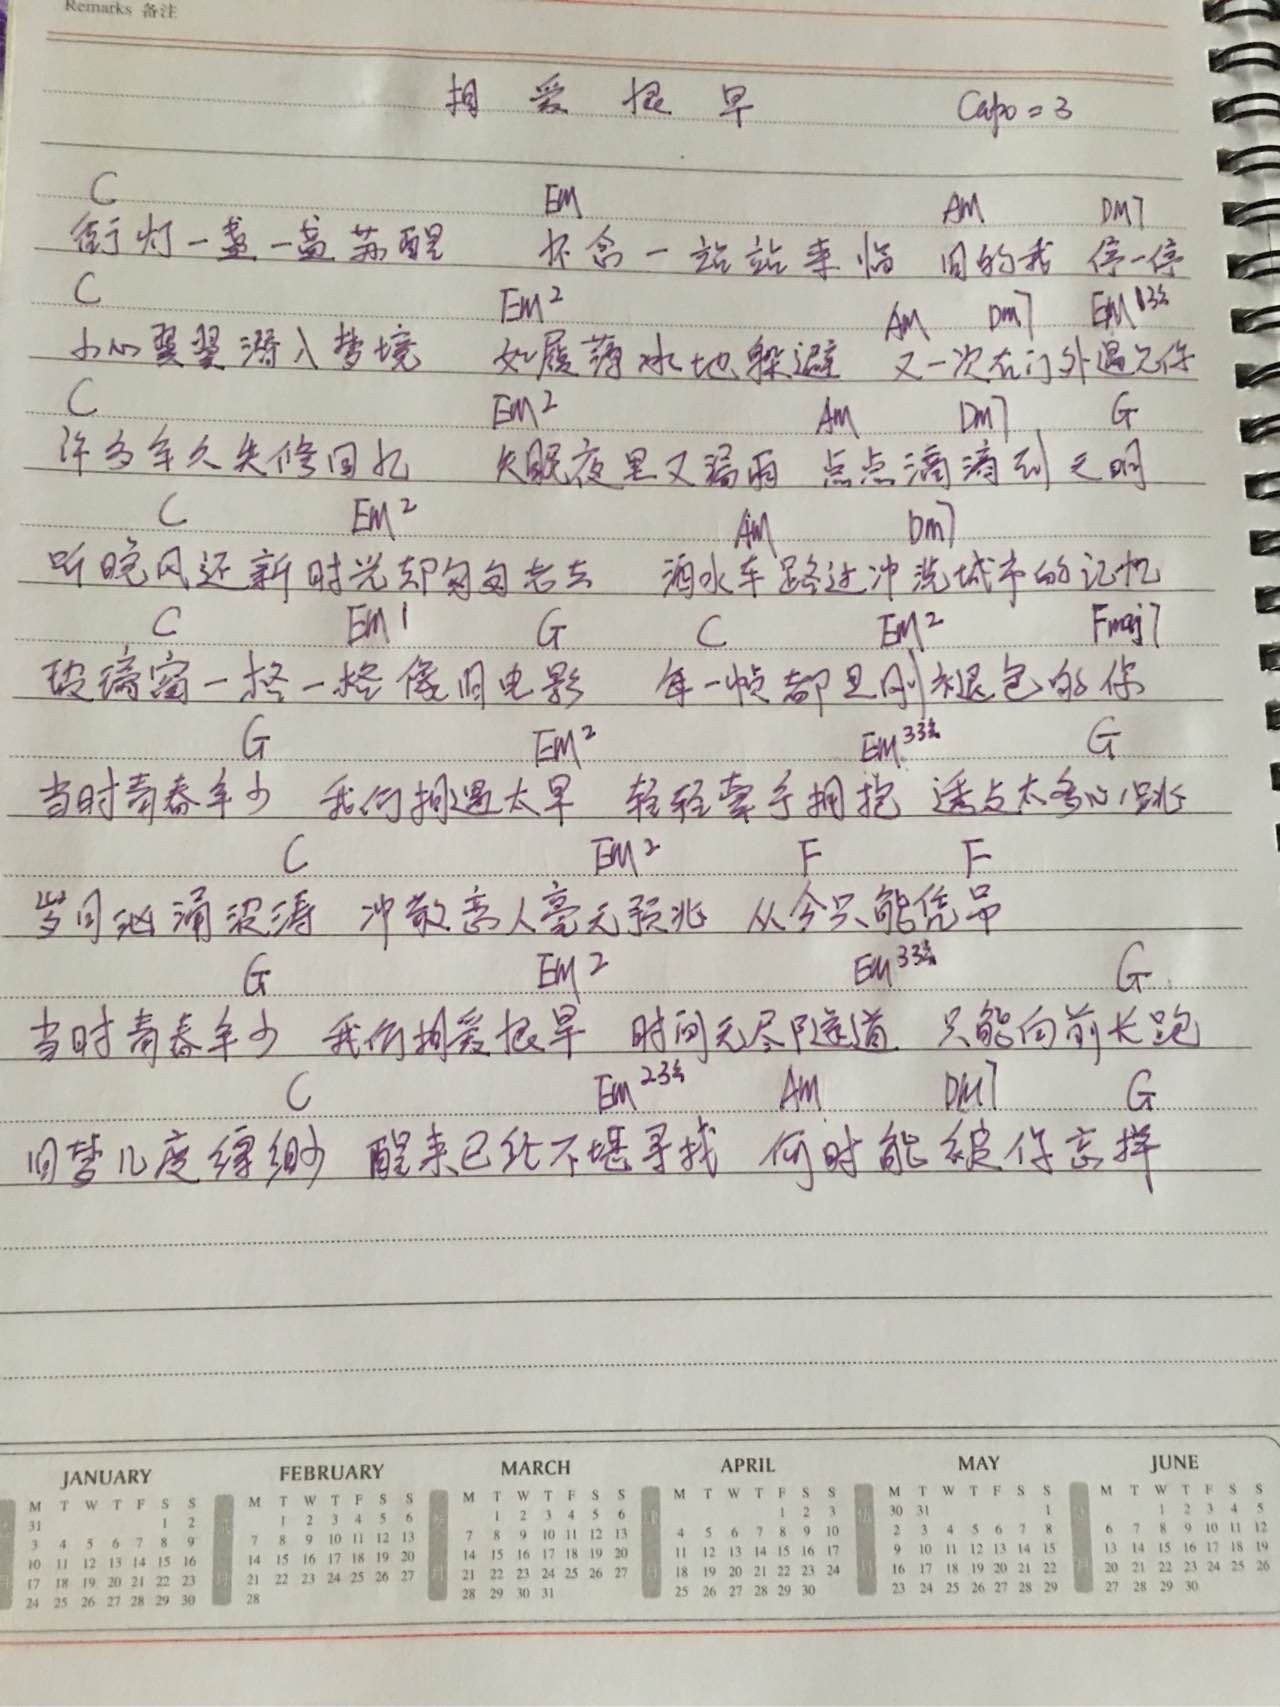 Remarks 备注
相爱很早 Capo=3
C EM AM DM7
街灯一盏一盏苏醒 怀念一站站来临 旧的我 停一停
C EM2 AM DM7 EM 13弦
小心翼翼潜入梦境 如履薄冰地躲避 又一次在门外遇见你
C EM2 AM DM7 G
许多年久失修回忆 失眠夜里又漏雨 点点滴滴到天明
C EM2 AM DM7
听晚风还新时光却匆匆老去 洒水车路过冲洗城市的记忆
C EM1 G C EM2 Fmaj7
玻璃窗一格一格像旧电影 每一帧都是刚褪色的你
G EM2 EM33弦 G
当时青春年少 我们相遇太早 轻轻牵手拥抱 透支太多心跳
C EM2 F F
岁月汹涌波涛 冲散恋人毫无预兆 从今只能凭吊
G EM2 EM33弦 G
当时青春年少 我们相爱很早 时间无尽隧道 只能向前长跑
C EM23弦 AM DM7 G
旧梦几度缥缈 醒来已经不堪寻找 何时能被你忘掉
JANUARY FEBRUARY MARCH APRIL MAY JUNE
M T W T F S S M T W T F S S M T W T F S S M T W T F S S M T W T F S S M T W T F S S
31 1 2 1 2 3 4 5 6 1 2 3 4 5 6 1 2 3 30 31 1 1 2 3 4 5
3 4 5 6 7 8 9 7 8 9 10 11 12 13 7 8 9 10 11 12 13 4 5 6 7 8 9 10 2 3 4 5 6 7 8 6 7 8 9 10 11 12
10 11 12 13 14 15 16 14 15 16 17 18 19 20 14 15 16 17 18 19 20 11 12 13 14 15 16 17 9 10 11 12 13 14 15 13 14 15 16 17 18 19
17 18 19 20 21 22 23 21 22 23 24 25 26 27 21 22 23 24 25 26 27 18 19 20 21 22 23 24 16 17 18 19 20 21 22 20 21 22 23 24 25 26
24 25 26 27 28 29 30 28 28 29 30 31 25 26 27 28 29 30 23 24 25 26 27 28 29 27 28 29 30